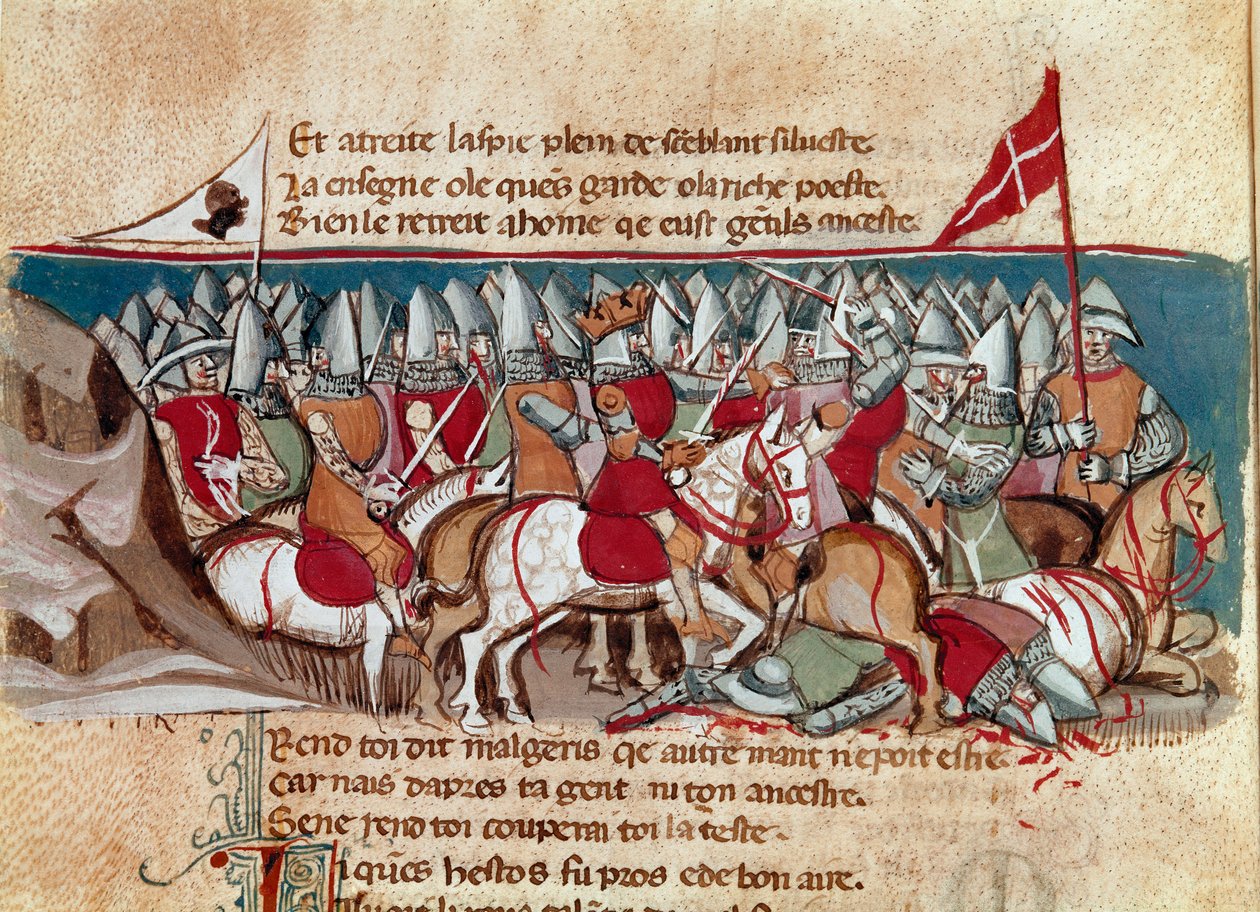 Et atreite laspie plein de sēblant silueste.
La ensegne ole quēs garde ola riche poeste.
Bien le retreit a home qe eust gētils anceste.
Rend toi dit malgeris qe autre mant nepoit estre.
Car nais dapres ta gent ni ton ancestre.
Sene rend toi couperai toi la teste.
Li quēs hestos fu pros ede bon aire.